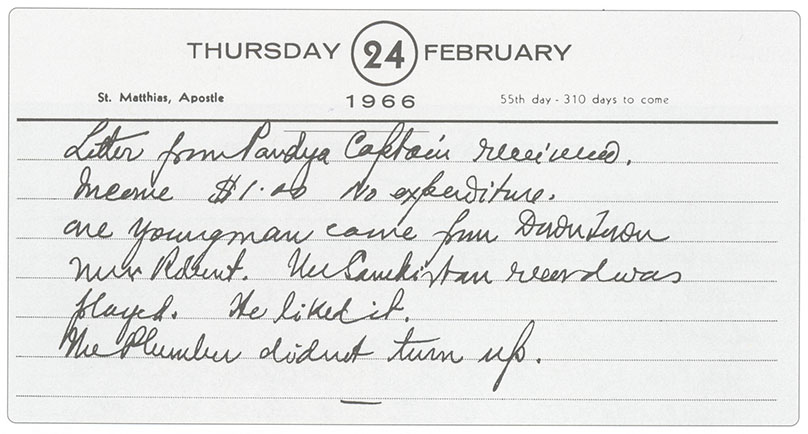 THURSDAY 24 FEBRUARY
St. Matthias, Apostle 1966 55th day - 310 days to come
Letter from Pandya Captain received.
Income $1.00 No expenditure.
one youngman came from DownTown
Robert. The Sankirtan record was
played. He liked it.
The Plumber didnot turn up.